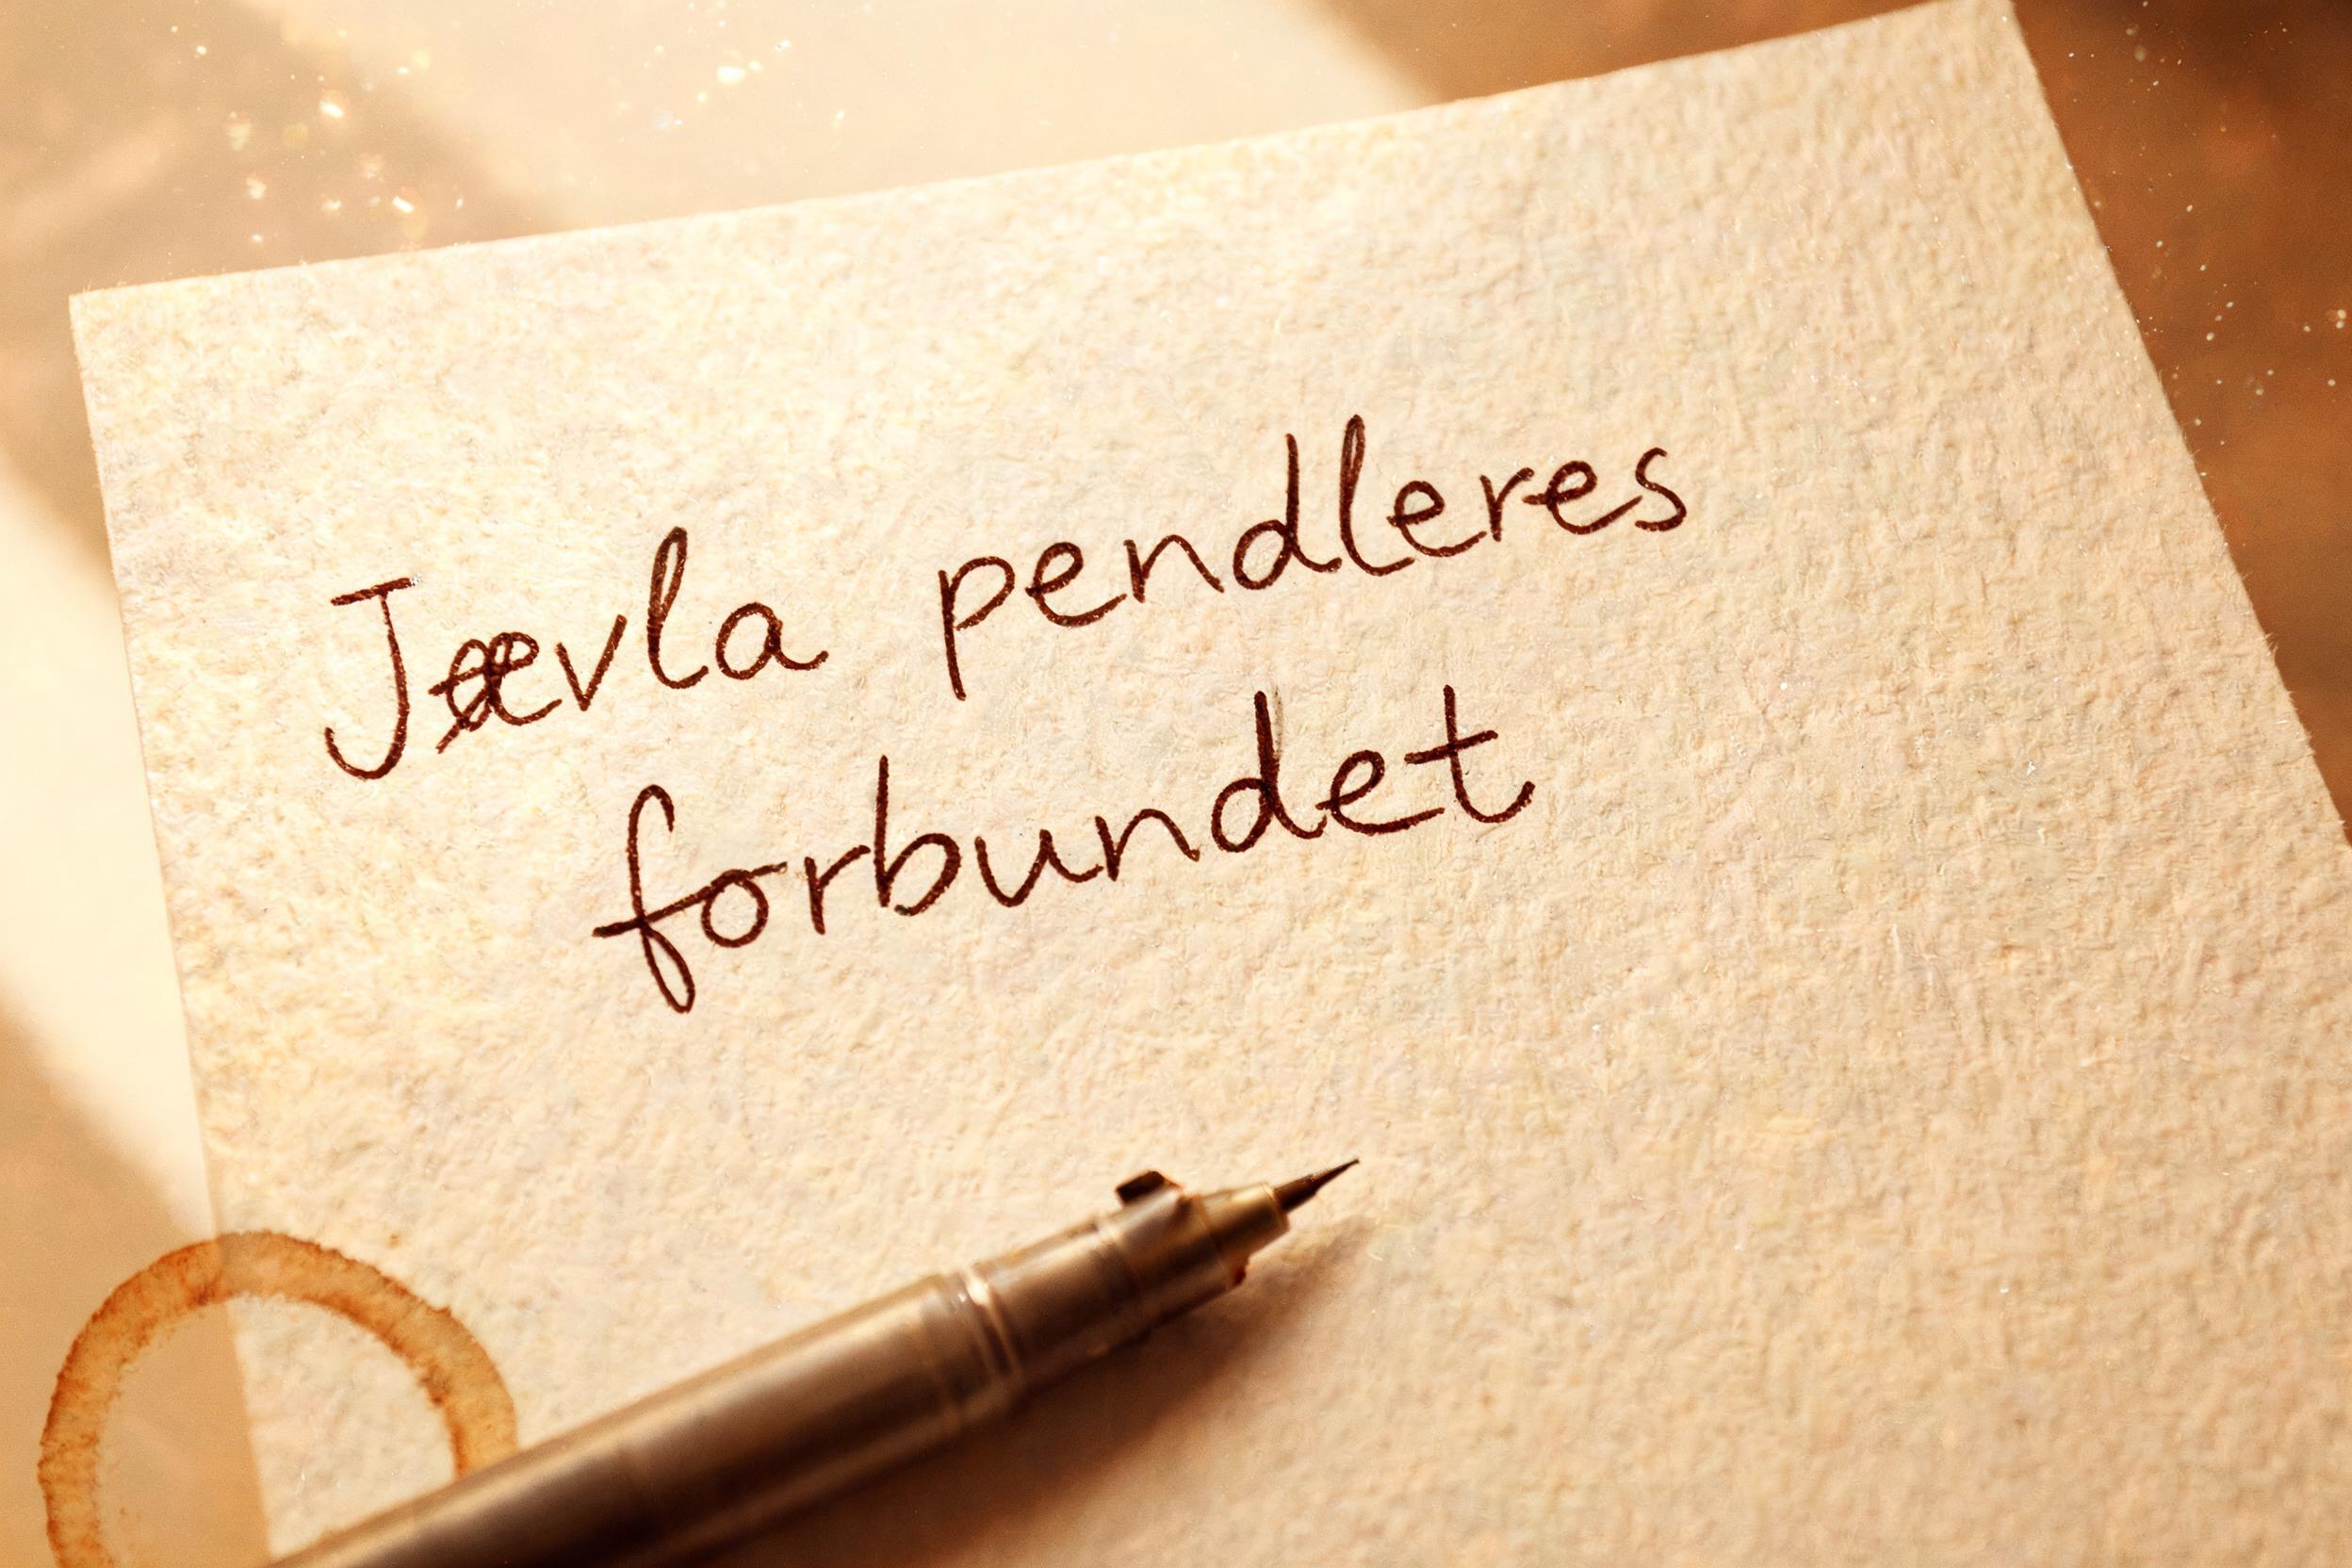 Jævla pendleres
forbundet